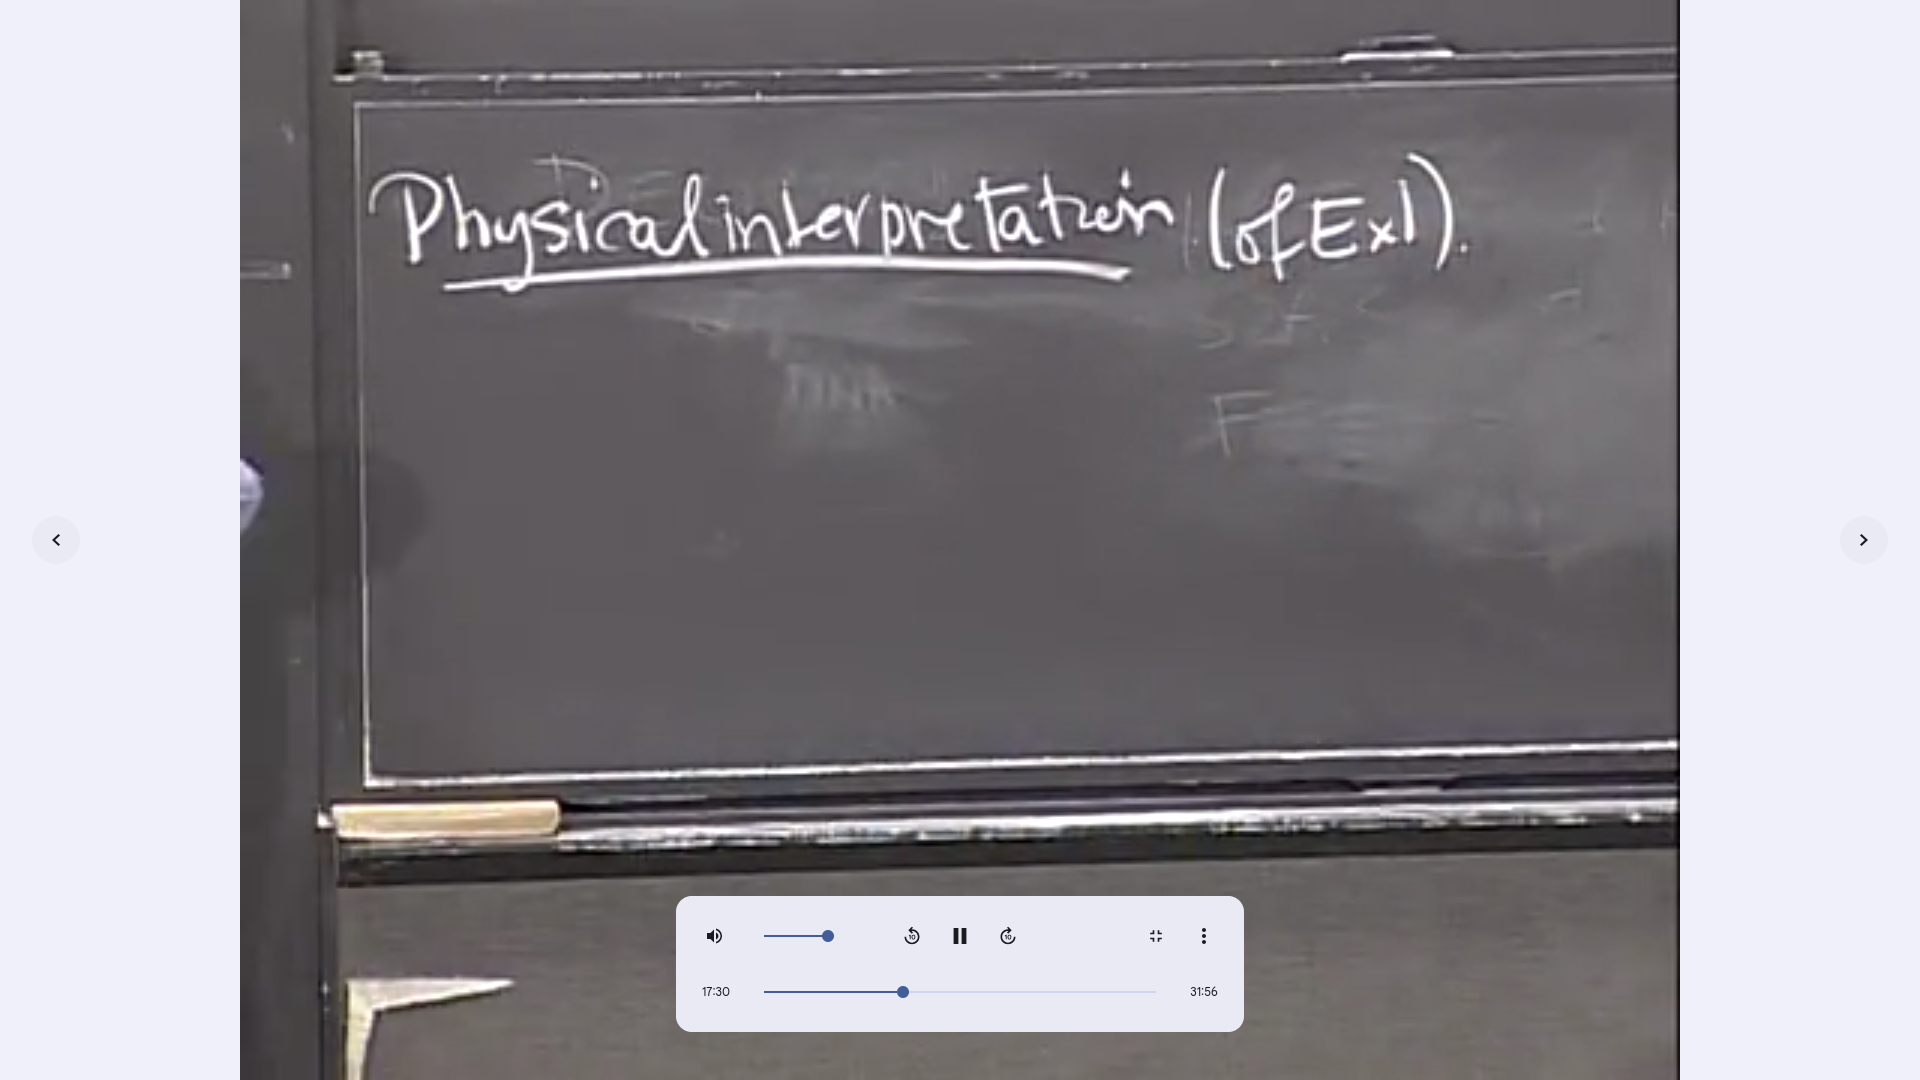 Physical interpretation (of Ex1).
DNA
F
10
10
17:30
31:56